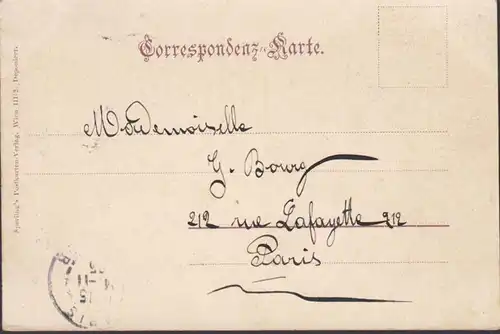 Correspondenz-Karte.
Mademoiselle
G. Bourg
212 rue Lafayette 212
Paris
Sperling's Postkarten-Verlag, Wien III/2. Deponiert.